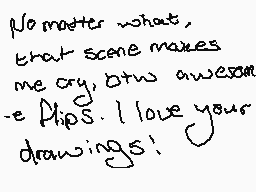 No matter what,
that scene makes
me cry, btw awesom
-e flips. I love your
drawings!